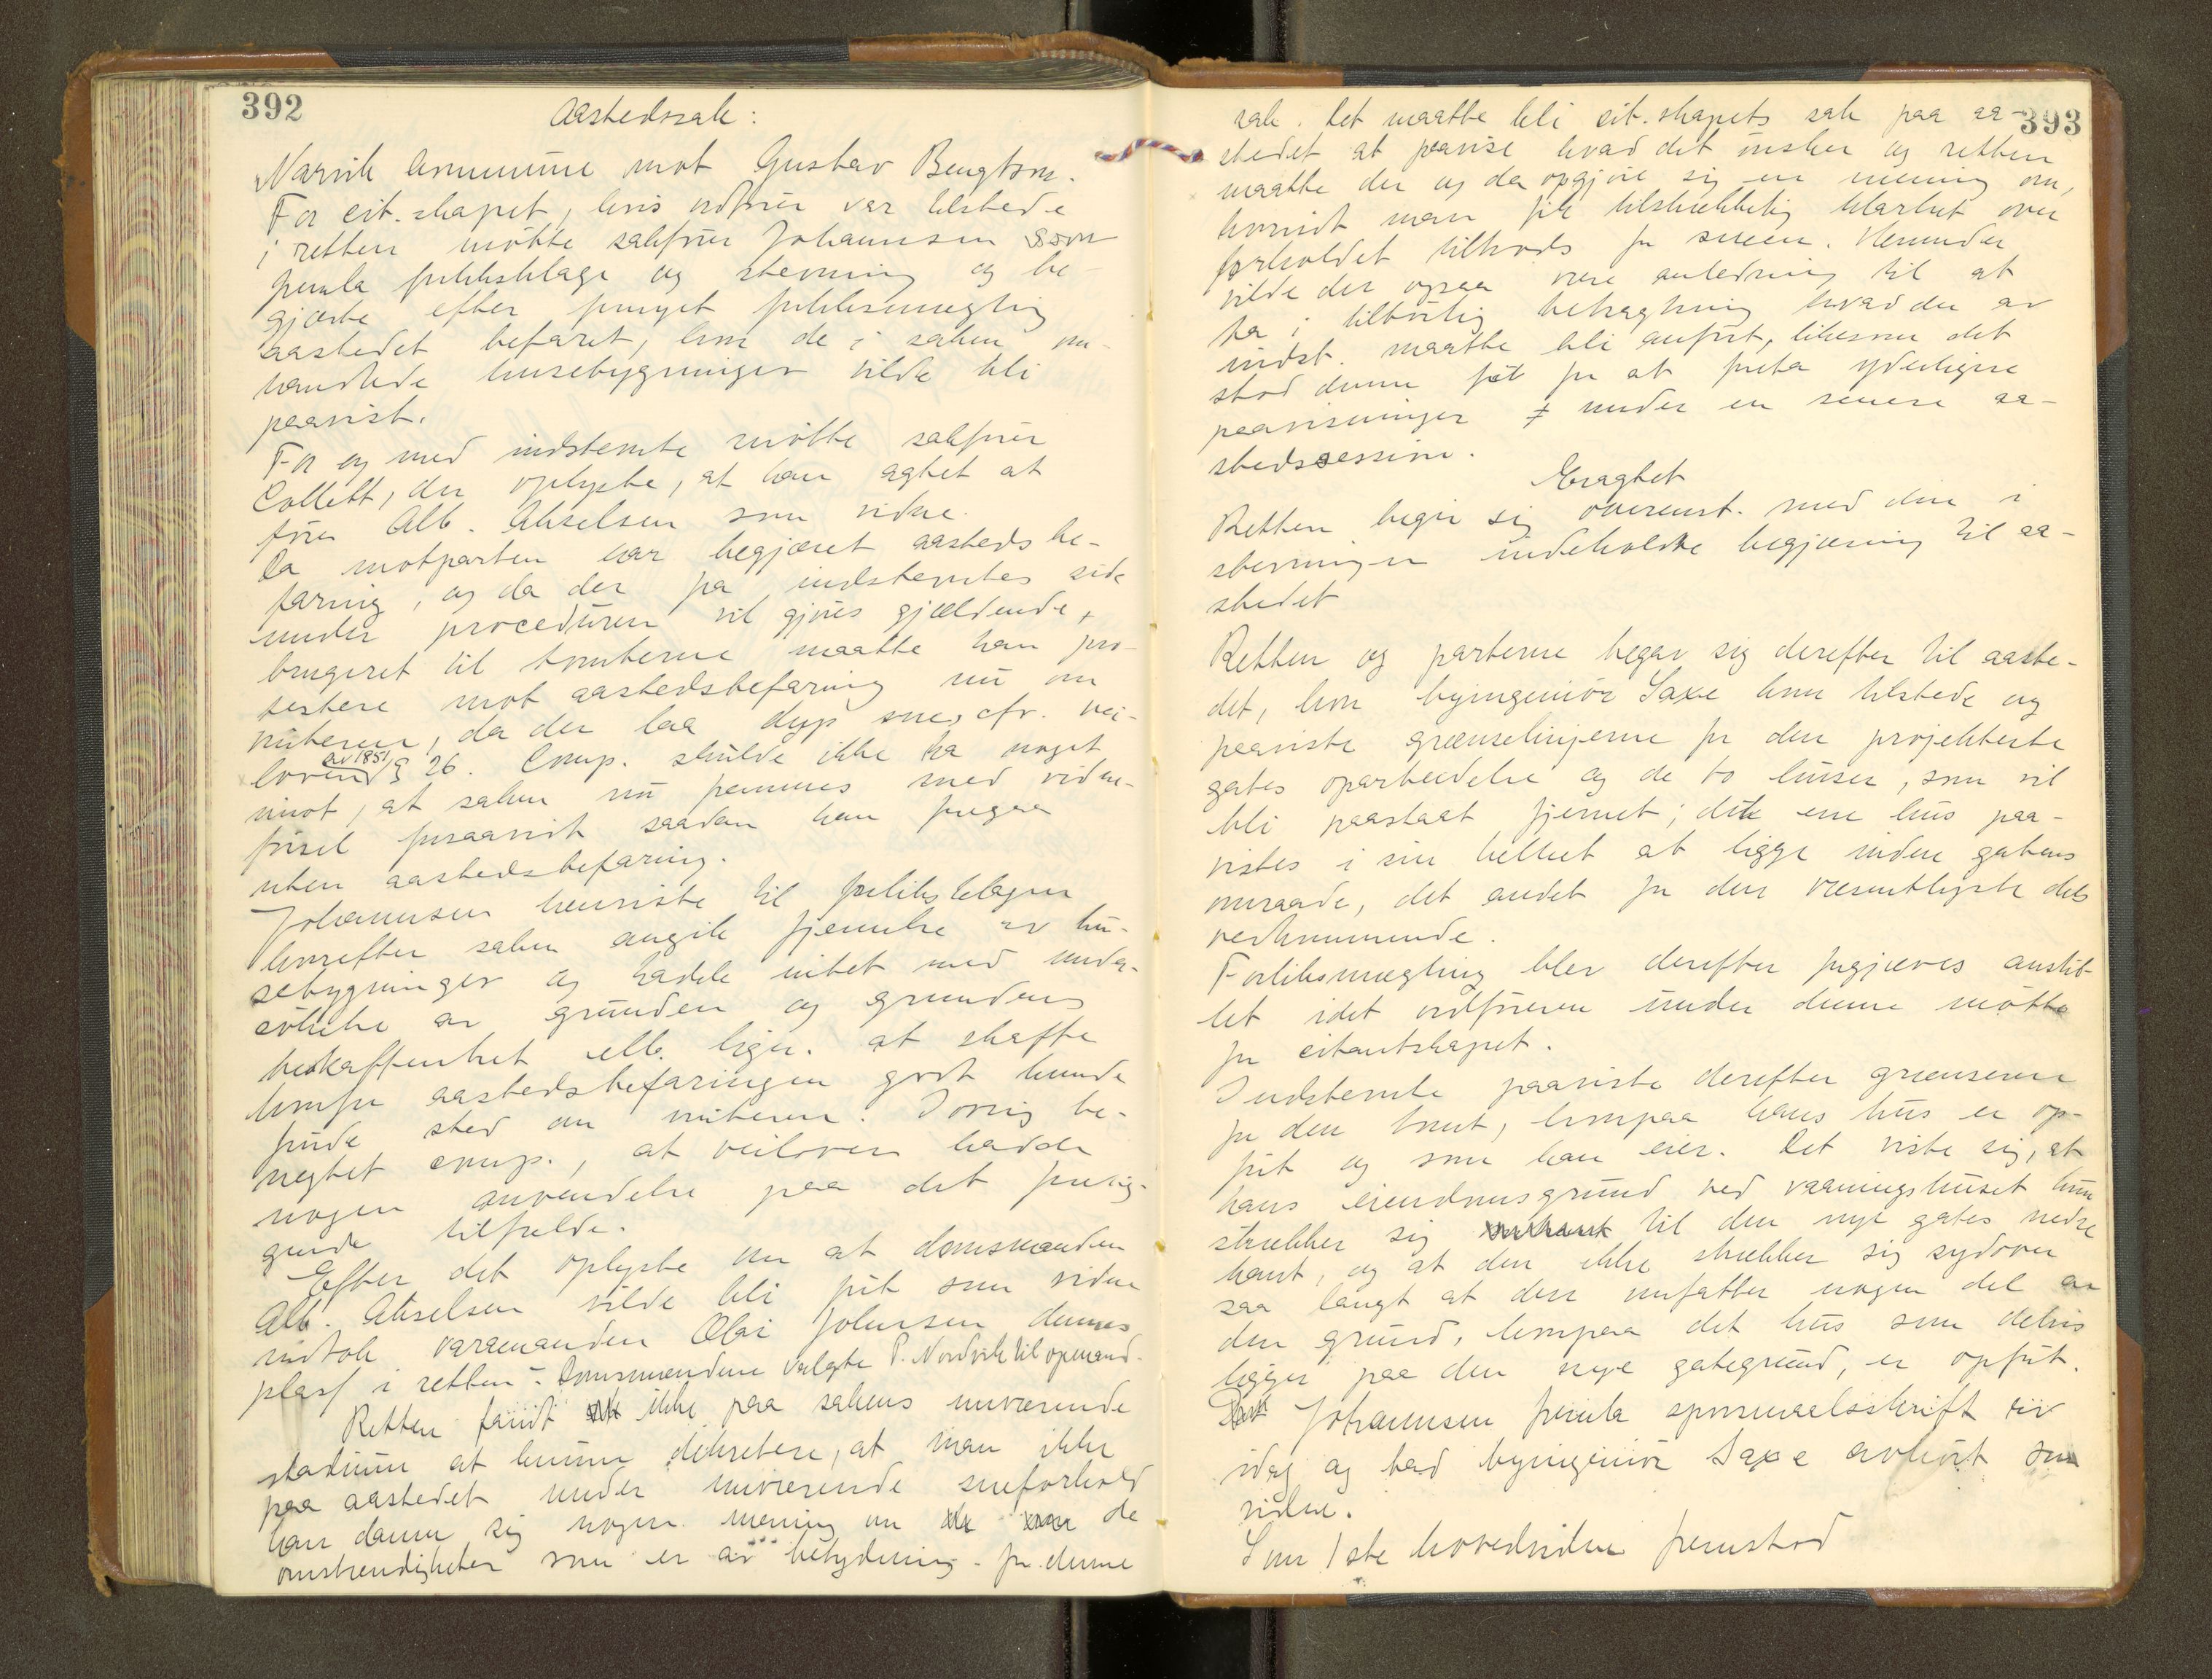 392
Aastedssak:
Narvik kommune mot Gustav Bengtson.
For cit.skapet, hvis ordfører var tilstede
i retten møtte sakfører Johannsen som
fremla forliksklage og stevning og be-
gjærte efter forsøgt forliksmægling
aastedet befaret, hvor de i saken om-
handlede husebygninger vilde bli
paavist.
For og med indstevnte møtte sakfører
Collett, der oplyste, at han agtet at
føre Alb. Akselsen som vidne.
Da motparten har begjæret aastedsbe-
faring, og da der fra indstevntes side
under proceduren vil gjøres gjældende,
bruksret til tomterne maatte han pro-
testere mot aastedsbefaring nu om
vinteren, da der laa dyp sne, cfr. vei-
loven av 1851 § 26. Comp. skulde ikke ha noget
imot, at saken nu fremmes med vidne-
førsel forsaavidt saadan kan foregaa
uten aastedsbefaring.
Johannsen henviste til forliksklagen
hvorefter saken angik fjernelse av hu-
sebygninger og hadde intet med under-
søkelse av grunden og grundens
beskaffenhet ell. lign. at skaffe
hvorfor aastedsbefaringen godt kunde
finde sted om vinteren. Iøvrig be-
negtet comp., at veiloven hadde
nogen anvendelse paa det forelig-
gende tilfælde.
Efter det oplyste om at domsmanden
Alb. Akselsen vilde bli ført som vidne
indtok varamanden Olai Johnsen dennes
plass i retten - Domsmændene valgte P. Nordvik til opmand.
Retten fandt ikke paa sakens nuværende
stadium at kunne dekretere, at man ikke
paa aastedet under nuværende sneforhold
kan danne sig nogen mening om de
omstændigheter som er av betydning for denne
393
sak. Det maatte bli cit.skapets sak paa aa-
stedet at paavise hvad det ønsker og retten
maatte der og da opgjøre sig en mening om,
hvorvidt man fik tilstrækkelig klarhet over
forholdet tiltrods for sneen. Herunder
vilde der ogsaa være anledning til at
ta i tilbørlig betragtning hvad der av
indst. maatte bli anført, likesom det
stod denne frit for at foreta yderligere
paavisninger under en senere aa-
stedssession.
Eragtet
Retten begir sig overenst. med den i
stevningen indeholdte begjæring til aa-
stedet
Retten og parterne begav sig derefter til aaste-
det, hvor byingeniør Saxe kom tilstede og
paaviste grænselinjerne for den projekterte
gates oparbeidelse og de to huser, som vil
bli paastaat fjernet; det ene hus paa-
vistes i sin helhet at ligge inden gatens
omraade, det andet for den væsentligste dels
vedkommende.
Forliksmægling blev derefter forgjæves anstil-
let idet ordføreren under denne møtte
for citantskapet.
Indstevnte paaviste derefter grænserne
for den tomt, hvorpaa hans hus er op-
ført og som han eier. Det viste sig, at
hans eiendomsgrund ved vaaningshuset kun
strækker sig til den nye gates nedre
kant, og at den ikke strækker sig sydover
saa langt at den omfatter nogen del av
den grund, hvorpaa det hus som delvis
ligger paa den nye gategrund, er opført.
Johannsen fremla spørsmaalsskrift
idag og bad byingeniør Saxe avhørt som
vidne.
Som 1ste hovedvidne fremstod